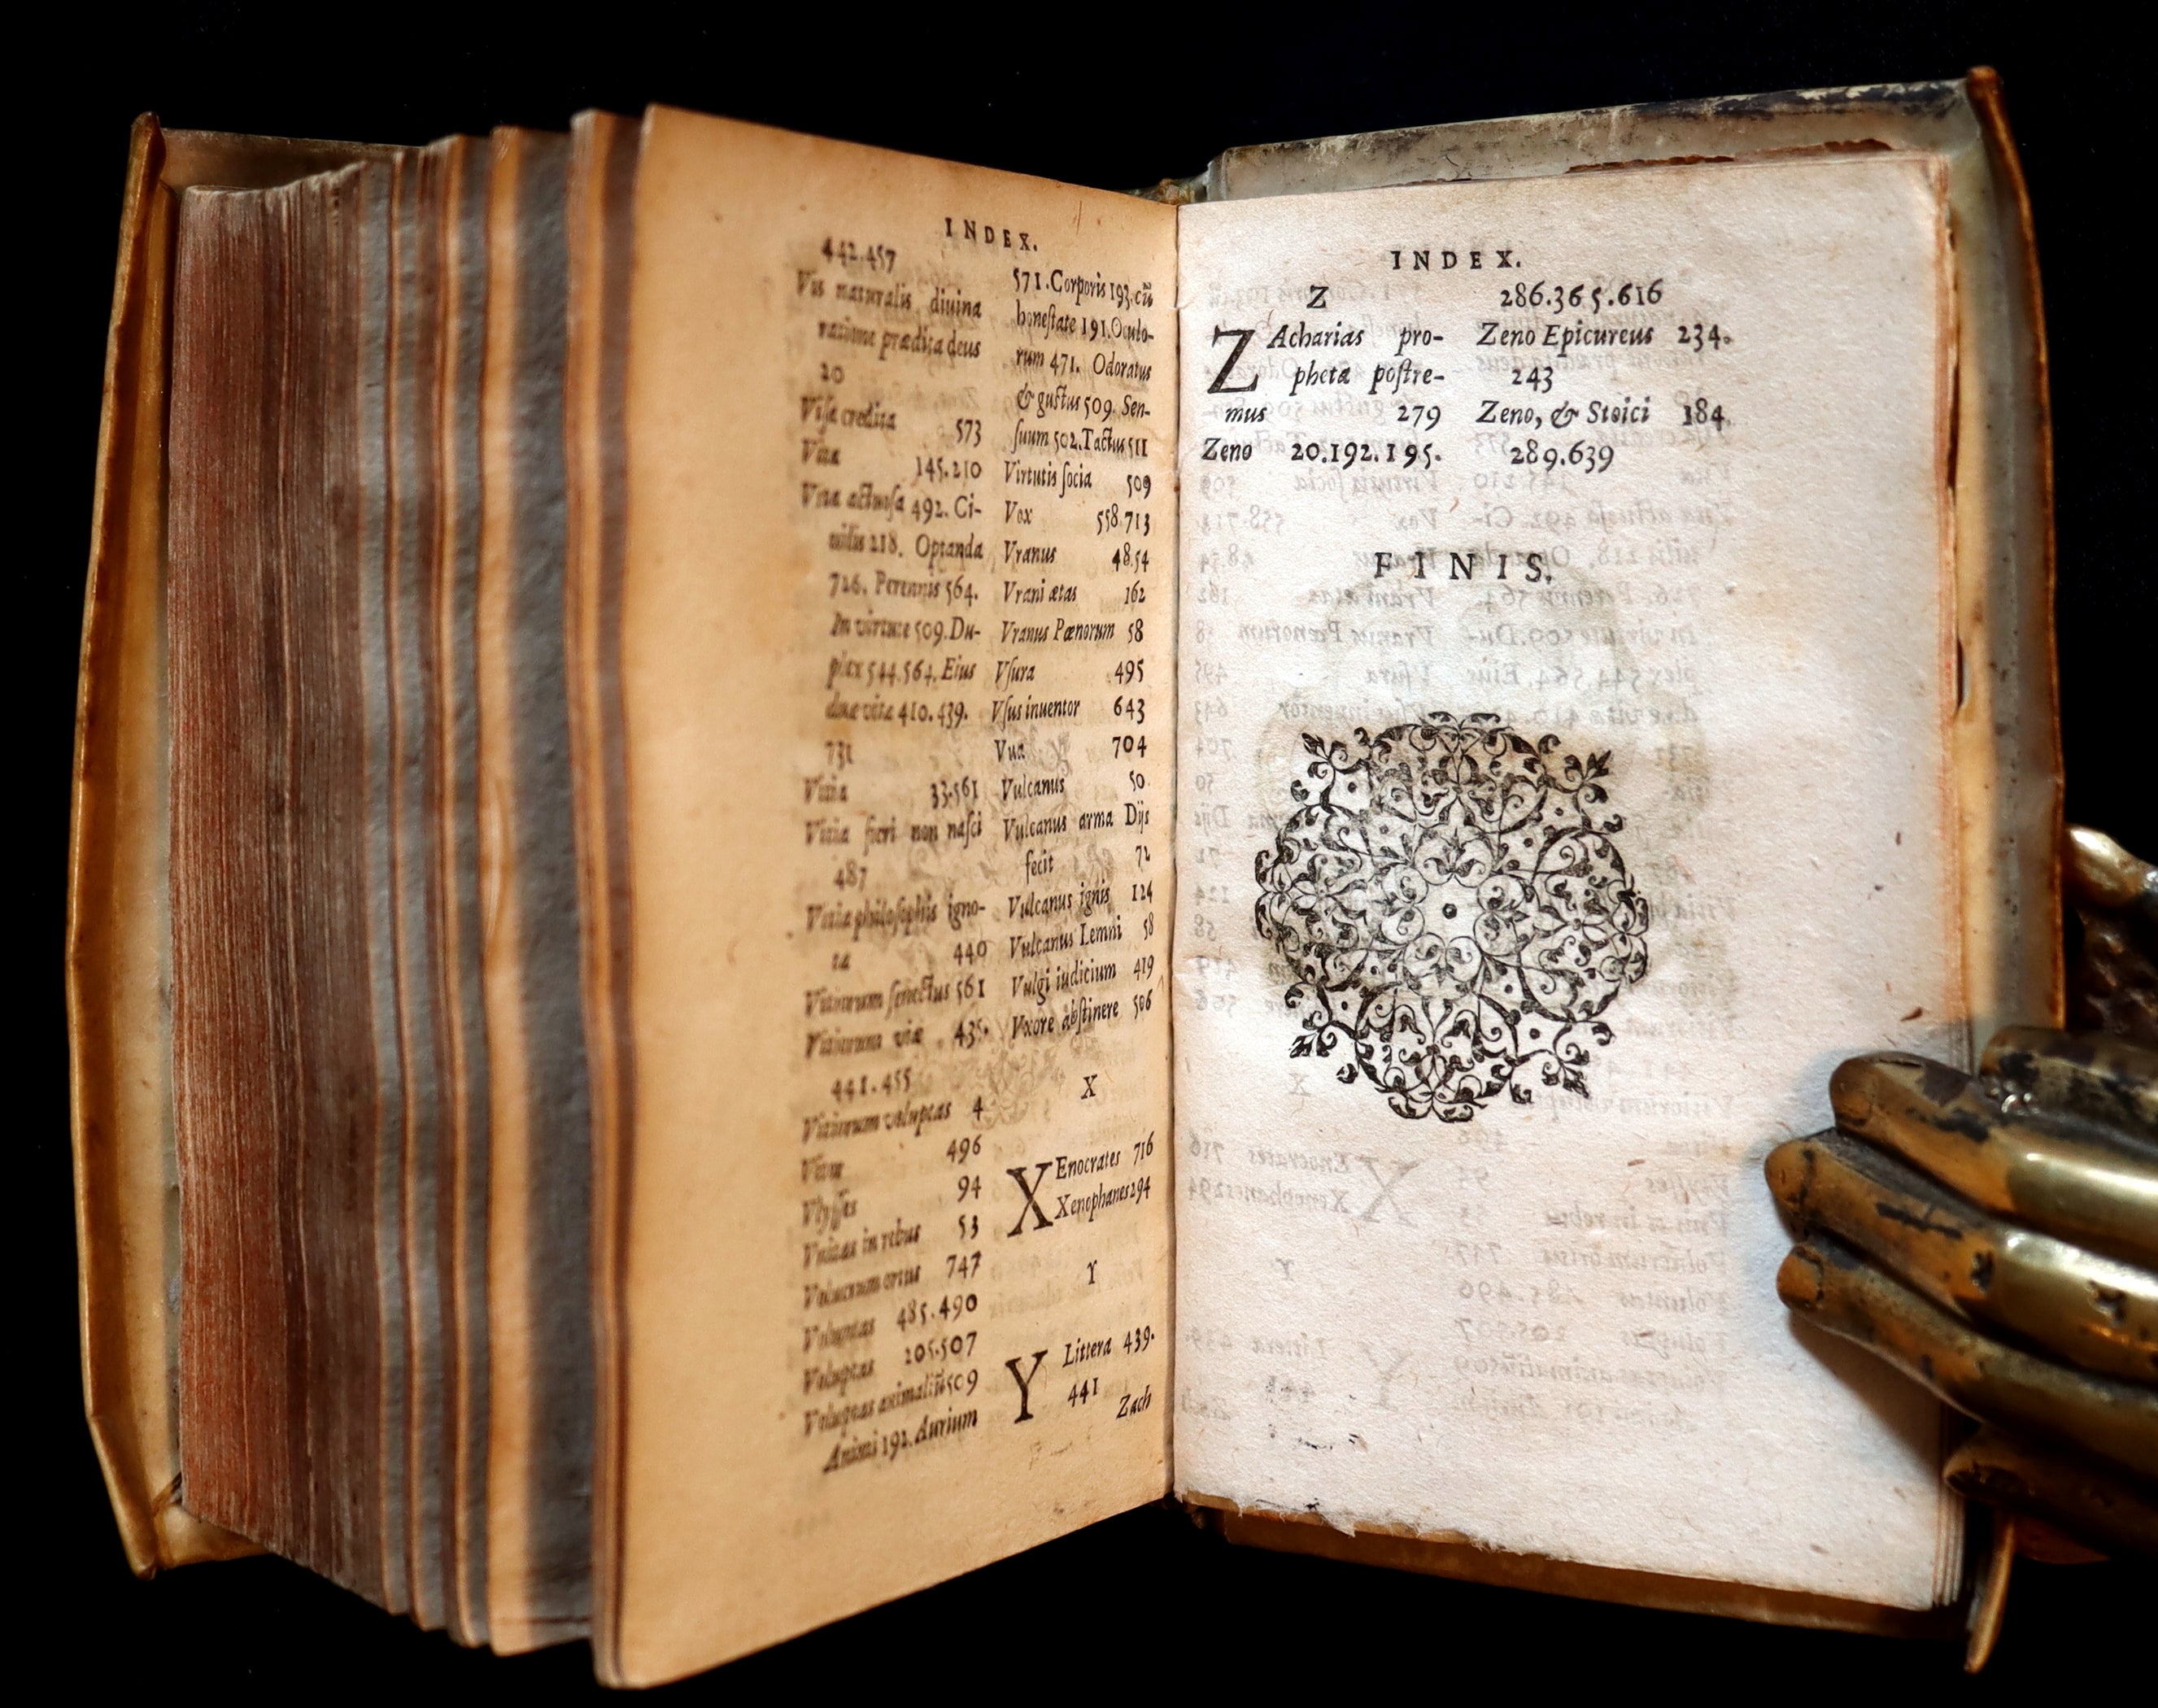 INDEX.
442.457
Vis naturalis divina
ratione prædita deus
20
Visa credita 573
Vita 145.210
Vita actuosa 492. Ci-
uilis 218. Optanda
726. Perennis 564.
In virtute 509. Du-
plex 544.564. Eius
duæ viæ 410.439.
731
Vitia 33.561
Vitia fieri non nasci
487
Vitia philosophis igno-
ta 440
Vitiorum senectus 561
Vitiorum viæ 435.
441.455
Vitiorum voluptas 4
496
Vlysses 94
Vnitas in rebus 53
Volucrum ortus 747
485.490
Voluptas 205.507
Voluptas animaliũ 509
Animi 192. Aurium
571. Corporis 193. cũ
honestate 191. Oculo-
rum 471. Odoratus
& gustus 509. Sen-
suum 502. Tactus 511
Virtutis socia 509
Vox 558.713
Vranus 48.54
Vrani ætas 162
Vranus Pœnorum 58
Vsura 495
Vsus inuentor 643
Vua 704
Vulcanus 50
Vulcanus arma Dijs
fecit 72
Vulcanus ignis 124
Vulcanus Lemni 58
Vulgi iudicium 419
Vxore abstinere 506
X
XEnocrates 716
Xenophanes 294
Y
Y Littera 439.
441
Zach
INDEX.
Z
ZAcharias pro-
pheta postre-
mus 279
Zeno 20.192.195.
286.365.616
Zeno Epicureus 234.
243
Zeno, & Stoici 184.
289.639
FINIS.